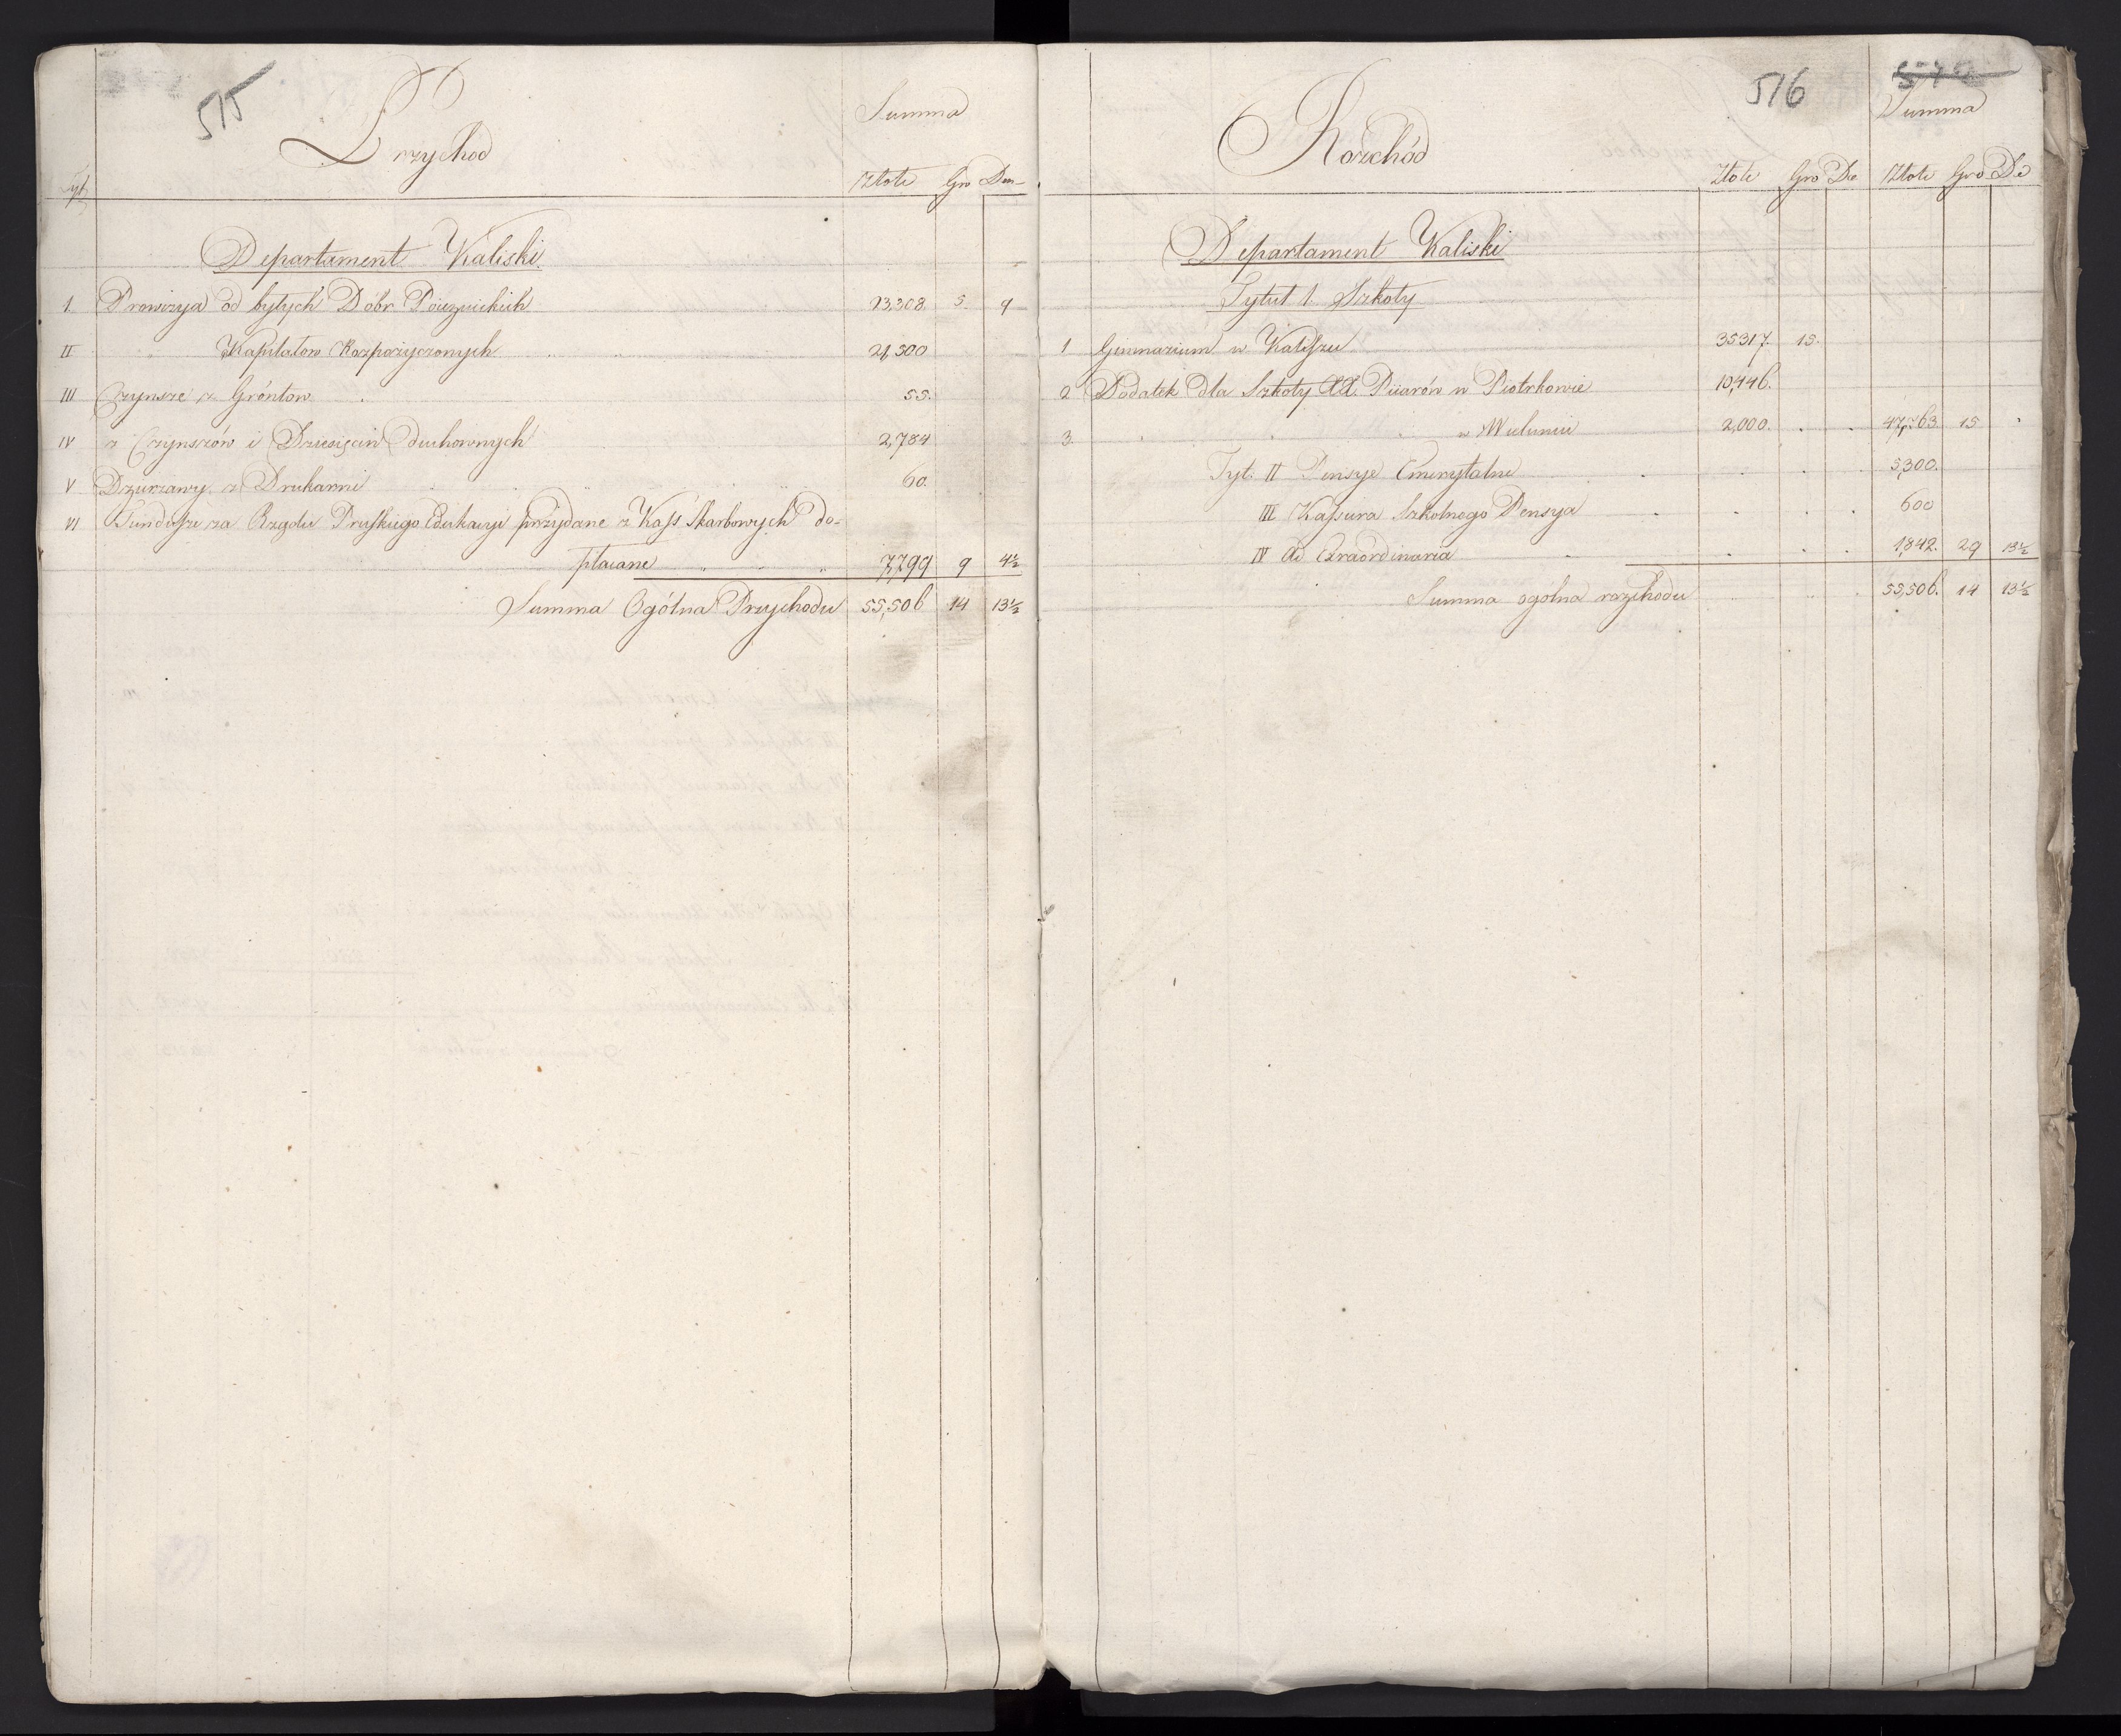 515
Przychod
Summa
Tyt.
Złote Gro Den
Departament Kaliski.
1. Prowizya od bytych Dóbr Poiezuickich 23,308. 5. 9
II " Kapitałow Rozpożyczonych 21,500
III Czynsze z Gróntow 55.
IV z Czynszów i Dziesięcin duchownych 2,784
V Dzierzawy z Drukarni 60.
VI Fundusze za Rządu Pruskiego Edukacyi przydane z Kass Skarbowych do-
płacane 7,799 9 4½
Summa Ogólna Przychodu 55,506 14 13½
516
572
Rozchód
Summa
Złote Gro De Złote Gro De
Departament Kaliski
Tytuł 1. Szkoły
1 Gimnazium w Kaliszu 35317. 15.
2 Dodatek dla Szkoły XX. Piiarów w Piotrkowie 10,446.
3. w Wieluniu 2,000. 47,763. 15
Tyt. II Pensye Emerytalne 5,300.
III Kassyera Szkolnego Pensya 600
IV Ad Extraordinaria 1,842. 29 13½
Summa ogólna rozchodu 55,506. 14 13½